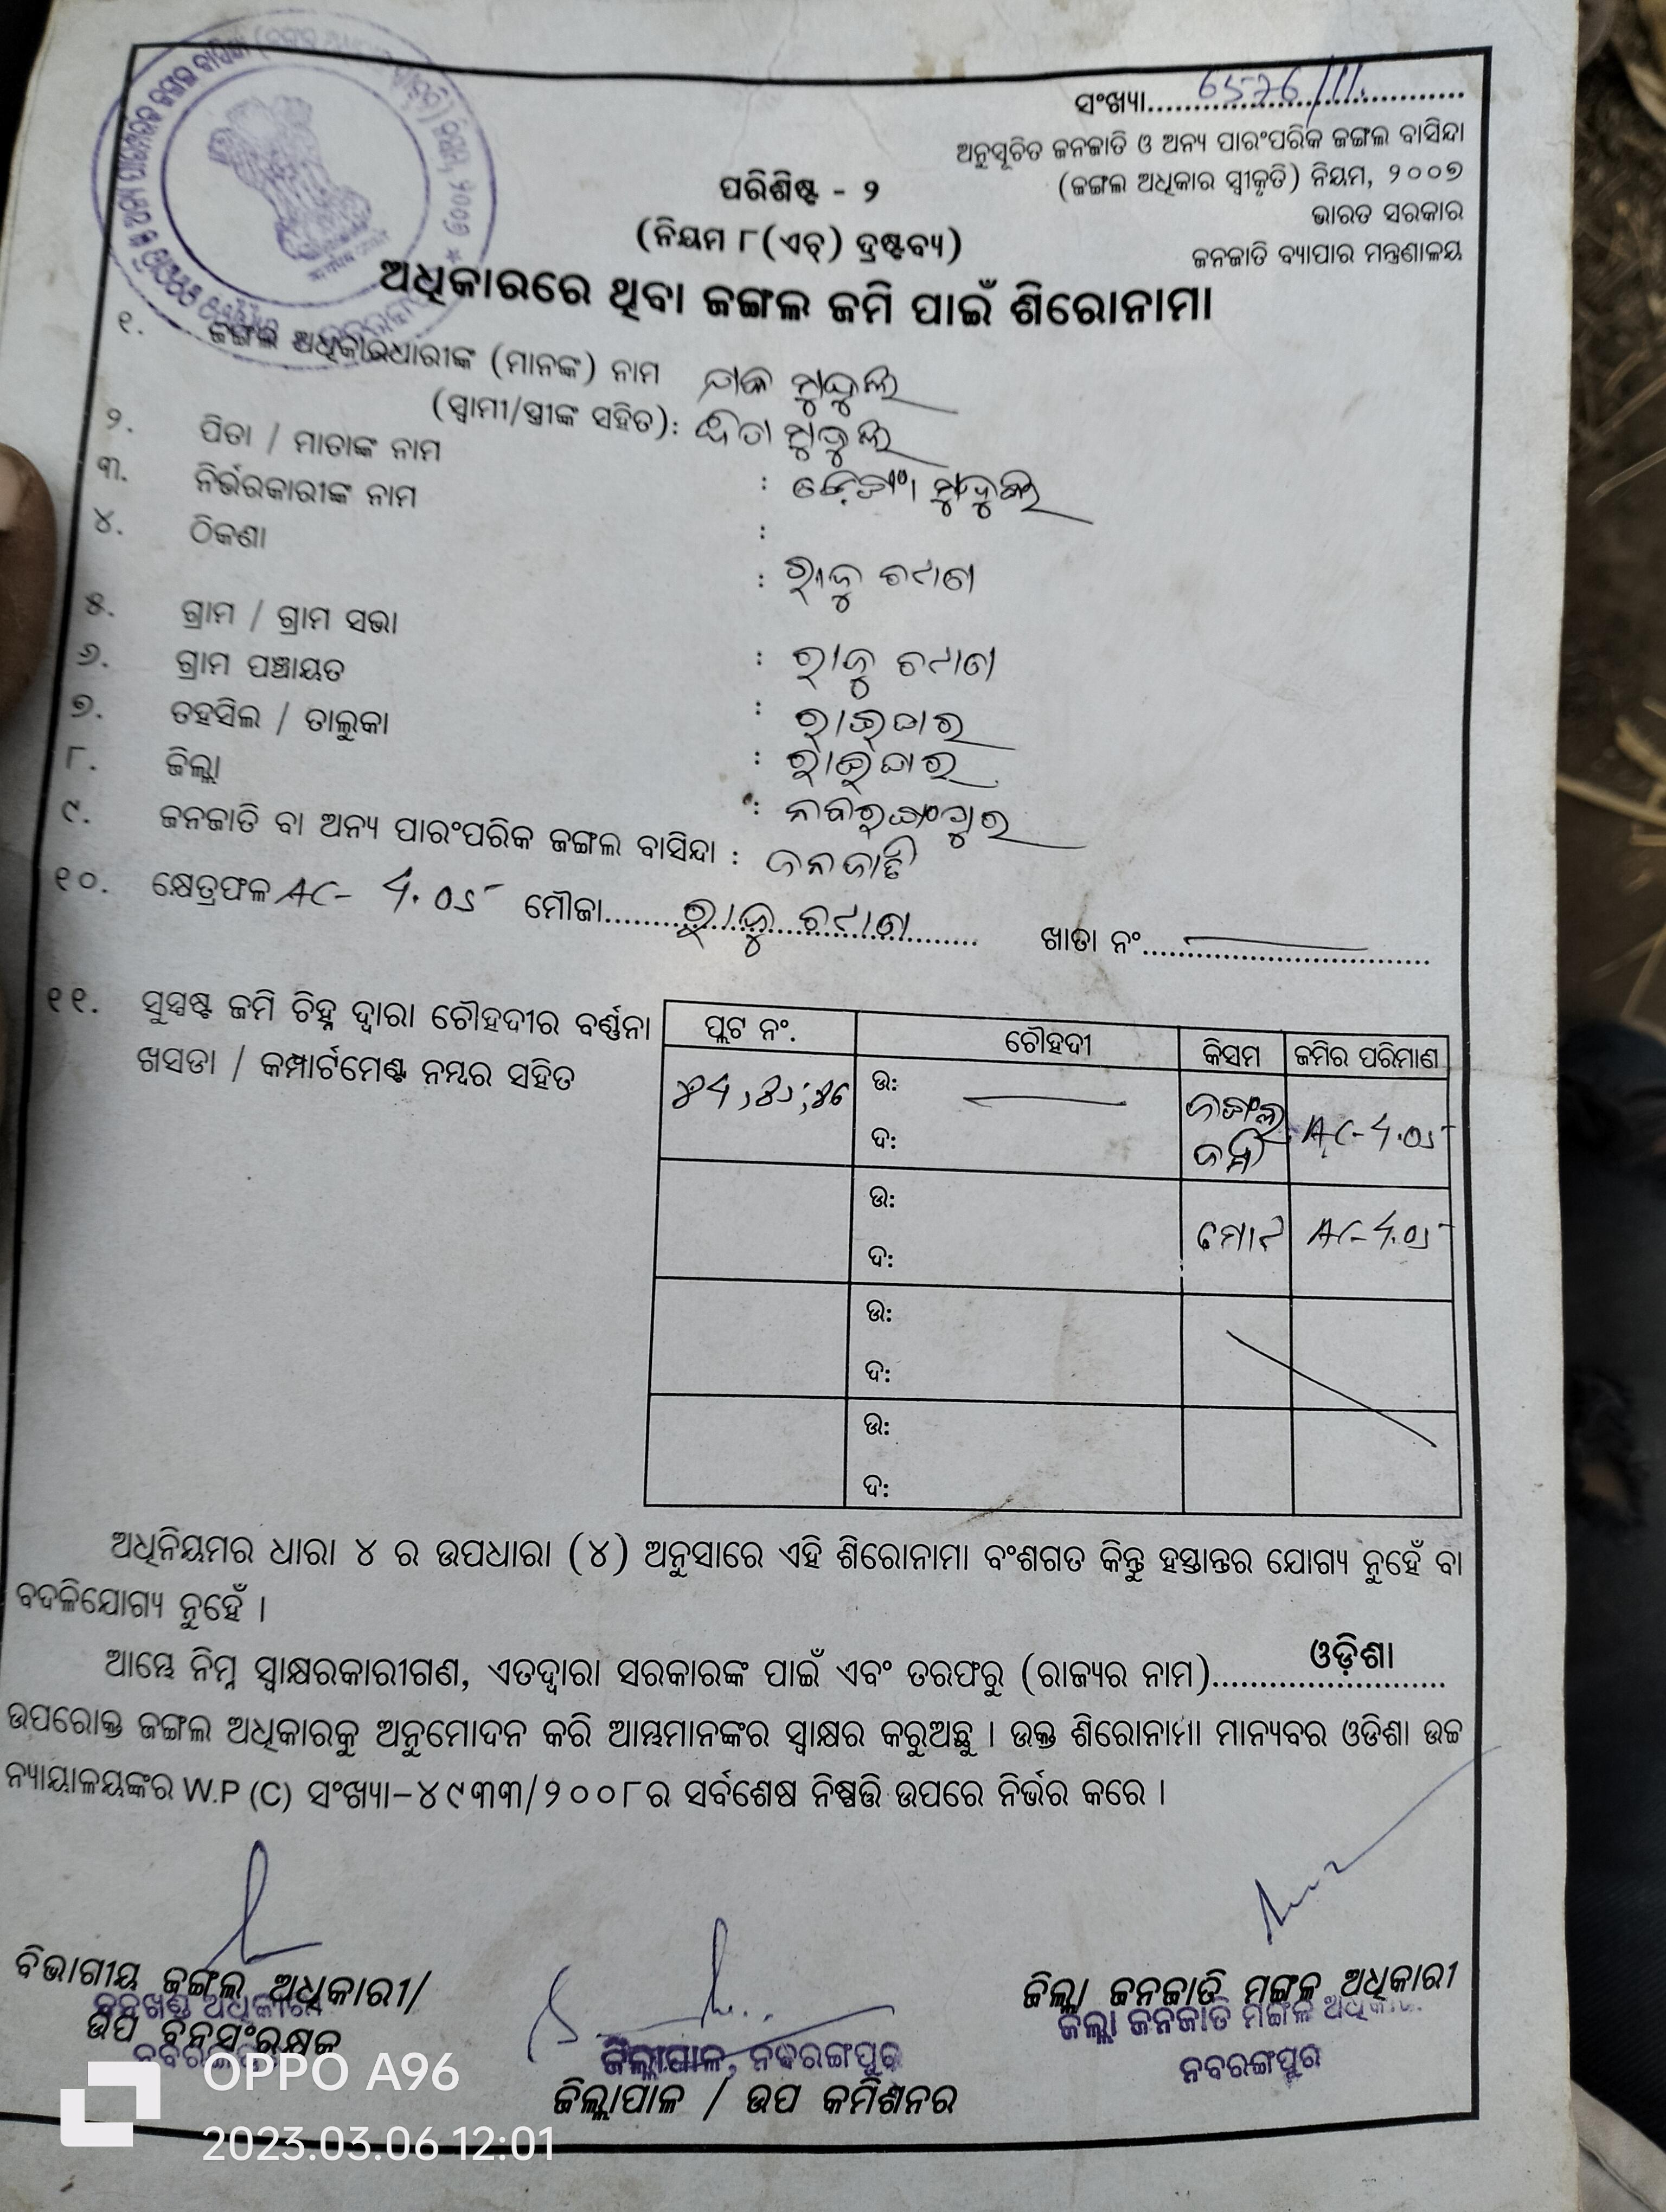 ସଂଖ୍ୟା..............................
ଅନୁସୂଚିତ ଜନଜାତି ଓ ଅନ୍ୟ ପାରଂପରିକ ଜଙ୍ଗଲ ବାସିନ୍ଦା
(ଜଙ୍ଗଲ ଅଧିକାର ସ୍ୱୀକୃତି) ନିୟମ, ୨୦୦୭
ଭାରତ ସରକାର
ଜନଜାତି ବ୍ୟାପାର ମନ୍ତ୍ରଣାଳୟ
ପରିଶିଷ୍ଟ - ୨
(ନିୟମ ୮(ଏଚ୍) ଦ୍ରଷ୍ଟବ୍ୟ)
ଅଧିକାରରେ ଥିବା ଜଙ୍ଗଲ ଜମି ପାଇଁ ଶିରୋନାମା
୧. ଜଙ୍ଗଲ ଅଧିକାରଧାରୀଙ୍କ (ମାନଙ୍କ) ନାମ
(ସ୍ୱାମୀ/ସ୍ତ୍ରୀଙ୍କ ସହିତ):
୨. ପିତା / ମାତାଙ୍କ ନାମ :
୩. ନିର୍ଭରକାରୀଙ୍କ ନାମ :
୪. ଠିକଣା :
୫. ଗ୍ରାମ / ଗ୍ରାମ ସଭା :
୬. ଗ୍ରାମ ପଞ୍ଚାୟତ : ରାଇଘର
୭. ତହସିଲ / ତାଲୁକା : ରାଇଘର
୮. ଜିଲ୍ଲା : ନବରଙ୍ଗପୁର
୯. ଜନଜାତି ବା ଅନ୍ୟ ପାରଂପରିକ ଜଙ୍ଗଲ ବାସିନ୍ଦା : ଜନଜାତି
୧୦. କ୍ଷେତ୍ରଫଳ AC- ମୌଜା.............................. ଖାତା ନଂ..............................
୧୧. ସୁସ୍ପଷ୍ଟ ଜମି ଚିହ୍ନ ଦ୍ୱାରା ଚୌହଦୀର ବର୍ଣ୍ଣନା
ଖସଡା / କମ୍ପାର୍ଟମେଣ୍ଟ ନମ୍ବର ସହିତ
ପ୍ଲଟ ନଂ. ଚୌହଦୀ କିସମ ଜମିର ପରିମାଣ
ଉ: ଜଙ୍ଗଲ
ଦ: ଜମି AC-
ଉ:
ଦ: ମୋଟ AC-
ଉ:
ଦ:
ଉ:
ଦ:
ଅଧିନିୟମର ଧାରା ୪ ର ଉପଧାରା (୪) ଅନୁସାରେ ଏହି ଶିରୋନାମା ବଂଶଗତ କିନ୍ତୁ ହସ୍ତାନ୍ତର ଯୋଗ୍ୟ ନୁହେଁ ବା
ବଦଳିଯୋଗ୍ୟ ନୁହେଁ ।
ଆମ୍ଭେ ନିମ୍ନ ସ୍ୱାକ୍ଷରକାରୀଗଣ, ଏତଦ୍ୱାରା ସରକାରଙ୍କ ପାଇଁ ଏବଂ ତରଫରୁ (ରାଜ୍ୟର ନାମ)........ଓଡ଼ିଶା........
ଉପରୋକ୍ତ ଜଙ୍ଗଲ ଅଧିକାରକୁ ଅନୁମୋଦନ କରି ଆମ୍ଭମାନଙ୍କର ସ୍ୱାକ୍ଷର କରୁଅଛୁ । ଉକ୍ତ ଶିରୋନାମା ମାନ୍ୟବର ଓଡିଶା ଉଚ୍ଚ
ନ୍ୟାୟାଳୟଙ୍କର W.P (C) ସଂଖ୍ୟା-୪୯୩୩/୨୦୦୮ର ସର୍ବଶେଷ ନିଷ୍ପତ୍ତି ଉପରେ ନିର୍ଭର କରେ ।
ବିଭାଗୀୟ ଜଙ୍ଗଲ ଅଧିକାରୀ/
ଉପ ବନସଂରକ୍ଷକ
ଜିଲ୍ଲାପାଳ, ନବରଙ୍ଗପୁର
ଜିଲ୍ଲାପାଳ / ଉପ କମିଶନର
ଜିଲ୍ଲା ଜନଜାତି ମଙ୍ଗଳ ଅଧିକାରୀ
ଜିଲ୍ଲା ଜନଜାତି ମଙ୍ଗଳ ଅଧିକାରୀ
ନବରଙ୍ଗପୁର
OPPO A96
2023.03.06 12:01